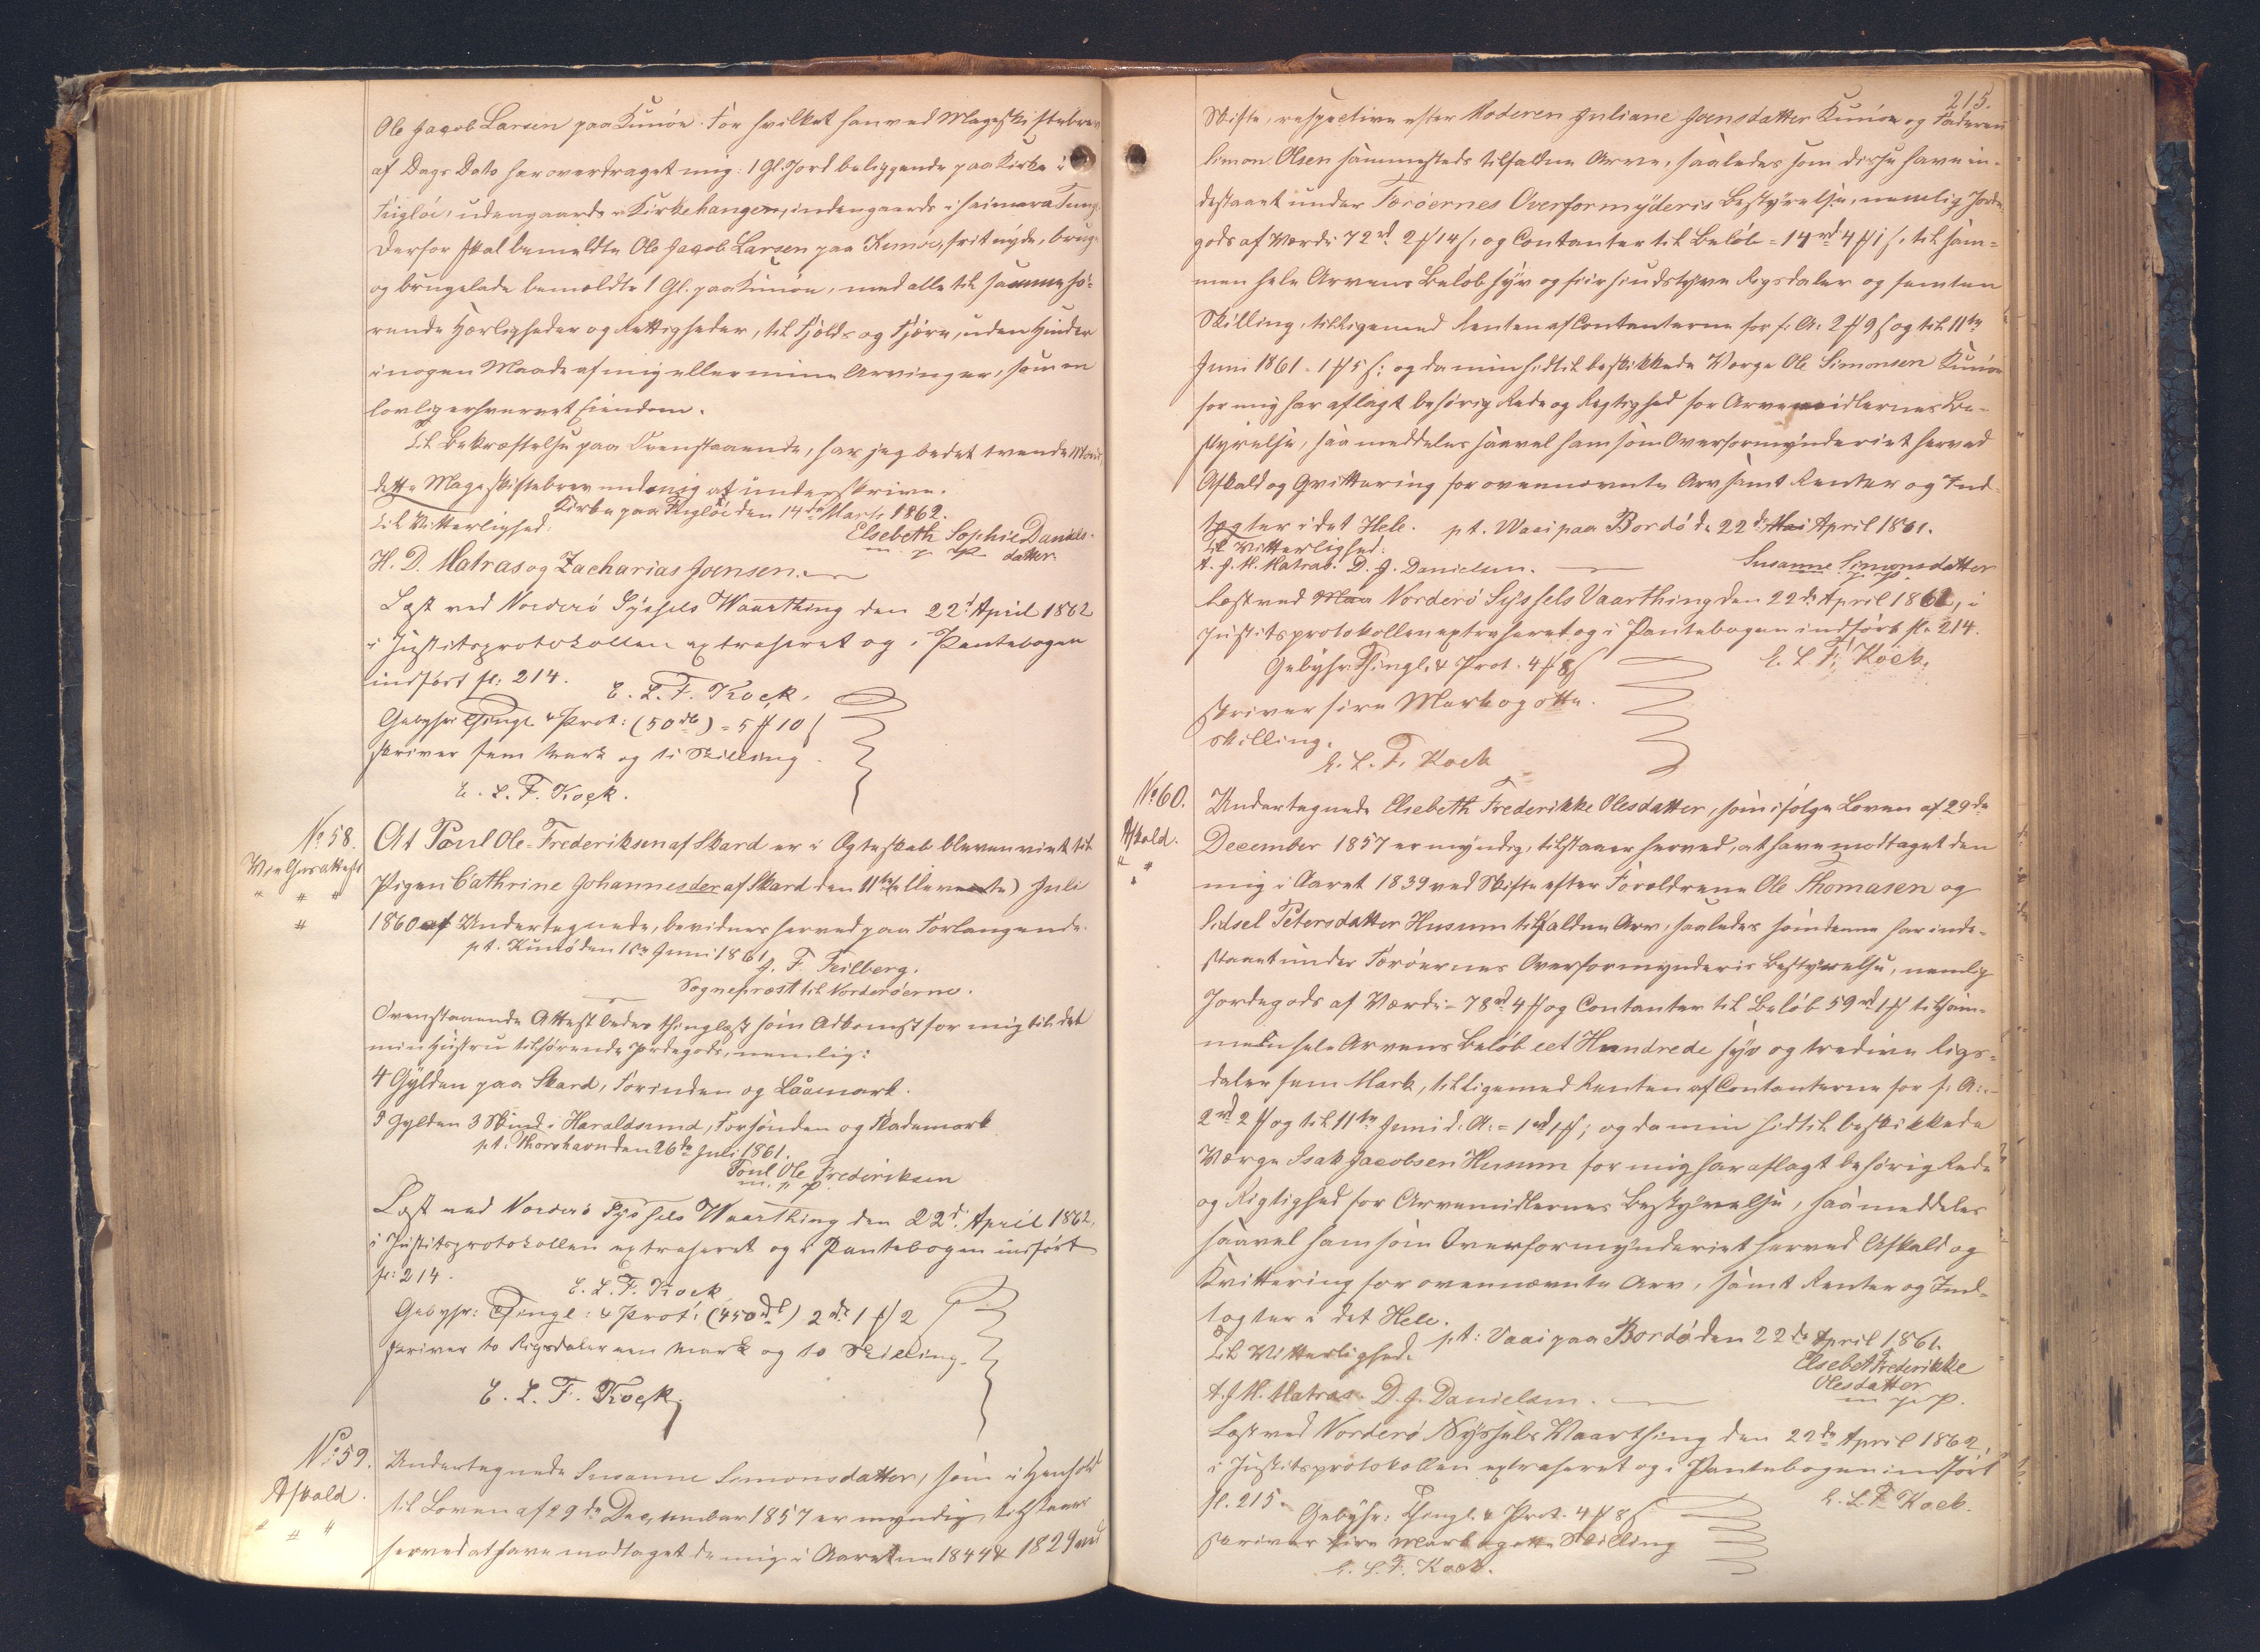 Ole Jacob Larsen paa Kunöe. For hvilket han ved Mageskiftebrev
af Dags Dato har overdraget mig: 1 Gl. Jord beliggende paa Kirke i
Fugloe, udengaards i Kirkehangen, indengaards i
Derfor skal bemeldte Ole Jacob Larsen paa Kunöe, frit nyde, bruge
og brugelade bemeldte 1 Gl. paa Kunöe, med alle til samme hö-
rende Herligheder og Rettigheder, til Fjelds og Fjære, uden Hinder
i nogen Maade af mig eller mine Arvinger, som en
lovlig erhvervet Eiendom.
Til Bekræftelse paa Ovenstaaende, har jeg bedet tvende Mænd,
dette Mageskiftebrev med mig at underskrive.
Kirke paa Fugloe den 14de Marts 1862.
Til Vitterlighed:
Elsebeth Sophie Daniels-
datter
m. p. P.
H. D. Matras og Zacharias Joensen.
Læst ved Norderö Syssels Vaarthing den 22d April 1862
i Justitsprotokollen extraheret og i Pantebogen
indfört fl: 214.
E. L. F. Kock.
Gebyhr: Thingl. & Prot: (50 rdl) = 5 # 10 s
skriver fem Mark og ti Skilling.
E. L. F. Kock.
No 58.
Vielsesattest
" " "
"
At Poul Ole Frederiksen af Skard er i Ægteskab bleven viet til
Pigen Cathrine Johannesder af Skard den 11te (ellevte) Juli
1860 af Undertegnede, bevidnes herved paa Forlangende.
pt. Kunö den 18de Juni 1861
J. F. Feilberg.
Sognepræst til Norderöerne.
Ovenstaaende Attest bedes thinglæst som Adkomst for mig til det
min Hustru tilhörende Jordegods, nemlig:
4 Gylden paa Skard, Forinden og Låamork.
5 Gylden 3 Skind i Haraldsund, Forsönden og Kademork
pt. Thorshavn den 26de Juli 1861.
Poul Ole Frederiksen
m. p. P.
Læst ved Norderö Syssels Vaarthing den 22d. April 1862,
i Justitsprotokollen extraheret og i Pantebogen indfört
fl: 214.
E. L. F. Kock
Gebyhr: Thingl: & Prot: (450 rdl) 2 rdl 1 # 2
skriver to Rigsdaler een Mark og to Skilling.
E. L. F. Kock.
No 59.
Afkald.
" " "
Undertegnede Susanne Simonsdatter, som i Henhold
til Loven af 29de December 1857 er myndig, tilstaaer
herved at have modtaget de mig i Aarene 1844 & 1829 ved
215.
Skifte, respective efter Moderen Juliane Joensdatter Kunöe og Faderen
Simon Olsen sammesteds tilfaldne Arve, saaledes som disse have in-
destaaet under Færöernes Overformynderis Bestyrelse, nemlig Jorde-
gods af Værdi 72 rd. 2 # 14 s, og Contanter til Belöb = 14 rd 4 # 1 s, til sam-
men hele Arvens Belöb syv og fiirsindstyve Rigsdaler og femten
Skilling, tilligemed Renten af Contanterne for f: A. 2 # 9 s og til 11te
Juni 1861 - 1 # 5 s; og da min hidtil beskikkede Værge Ole Simonsen Kunöe
for mig har aflagt behörig Rede og Regtighed for Arvemidlernes Be-
styrelse, saa meddeles saavel ham som Overformynderiet herved
Afkald og Qvittering for ovennævnte Arv samt Renter og Ind-
tægter i det Hele.
pt. Vaai paa Bordö d. 22de Mai April 1861.
Til Vitterlighed:
A. J. M. Matras. D. J. Danielsen.
Susanne Simonsdatter
m. p. P.
Læst ved Maa Norderö Syssels Vaarthing den 22de April 1862, i
Justitsprotokollen extraheret og i Pantebogen indfört fl. 214.
E. L. F. Kock.
Gebyhr Thingl. & Prot. 4 # 8 s
skriver fire Mark og otte
skilling.
E. L. F. Kock
No 60.
Afkald.
" "
"
Undertegnede Elsebeth Frederikke Olesdatter, som ifölge Loven af 29de
December 1857 er myndig, tilstaaer herved, at have modtaget den
mig i Aaret 1839 ved Skifte efter Forældrene Ole Thomasen og
Sidsel Petersdatter Husum tilfaldne Arv, saaledes som denne har inde-
staaet under Færöernes Overformynderis Bestyrelse, nemlig
Jordegods af Værdi = 78 rd 4 # og Contanter til Belöb 59 rd 1 # tilsam-
men hele Arvens Belöb eet Hundrede syv og tredive Rigs-
daler fem Mark, tilligemed Renten af Contanterne for f: A: -
2 rd 2 # og til 11te Juni d. A: = 1 rd 1 #; og da min hidtil beskikkede
Værge Isak Jacobsen Husum for mig har aflagt behörig Rede
og Rigtighed for Arvemidlernes Bestyrelse, saa meddeles
saavel ham som Overformynderiet herved Afkald og
Kvittering for ovennævnte Arv, samt Renter og Ind-
tægter i det Hele.
pt: Vaai paa Bordö den 22de April 1861.
Til Vitterlighed:
Elsebet Frederikke
Olesdatter
m. p. P.
A. J. M. Matras. D. J. Danielsen.
Læst ved Norderö Syssels Vaarthing den 22de April 1862,
i Justitsprotokollen extraheret og i Pantebogen indfört
fl. 215.
E. L. F. Kock.
Gebyhr: Thingl. & Prot. 4 # 8 s
skriver fire Mark og otte Skilling
E. L. F. Kock.